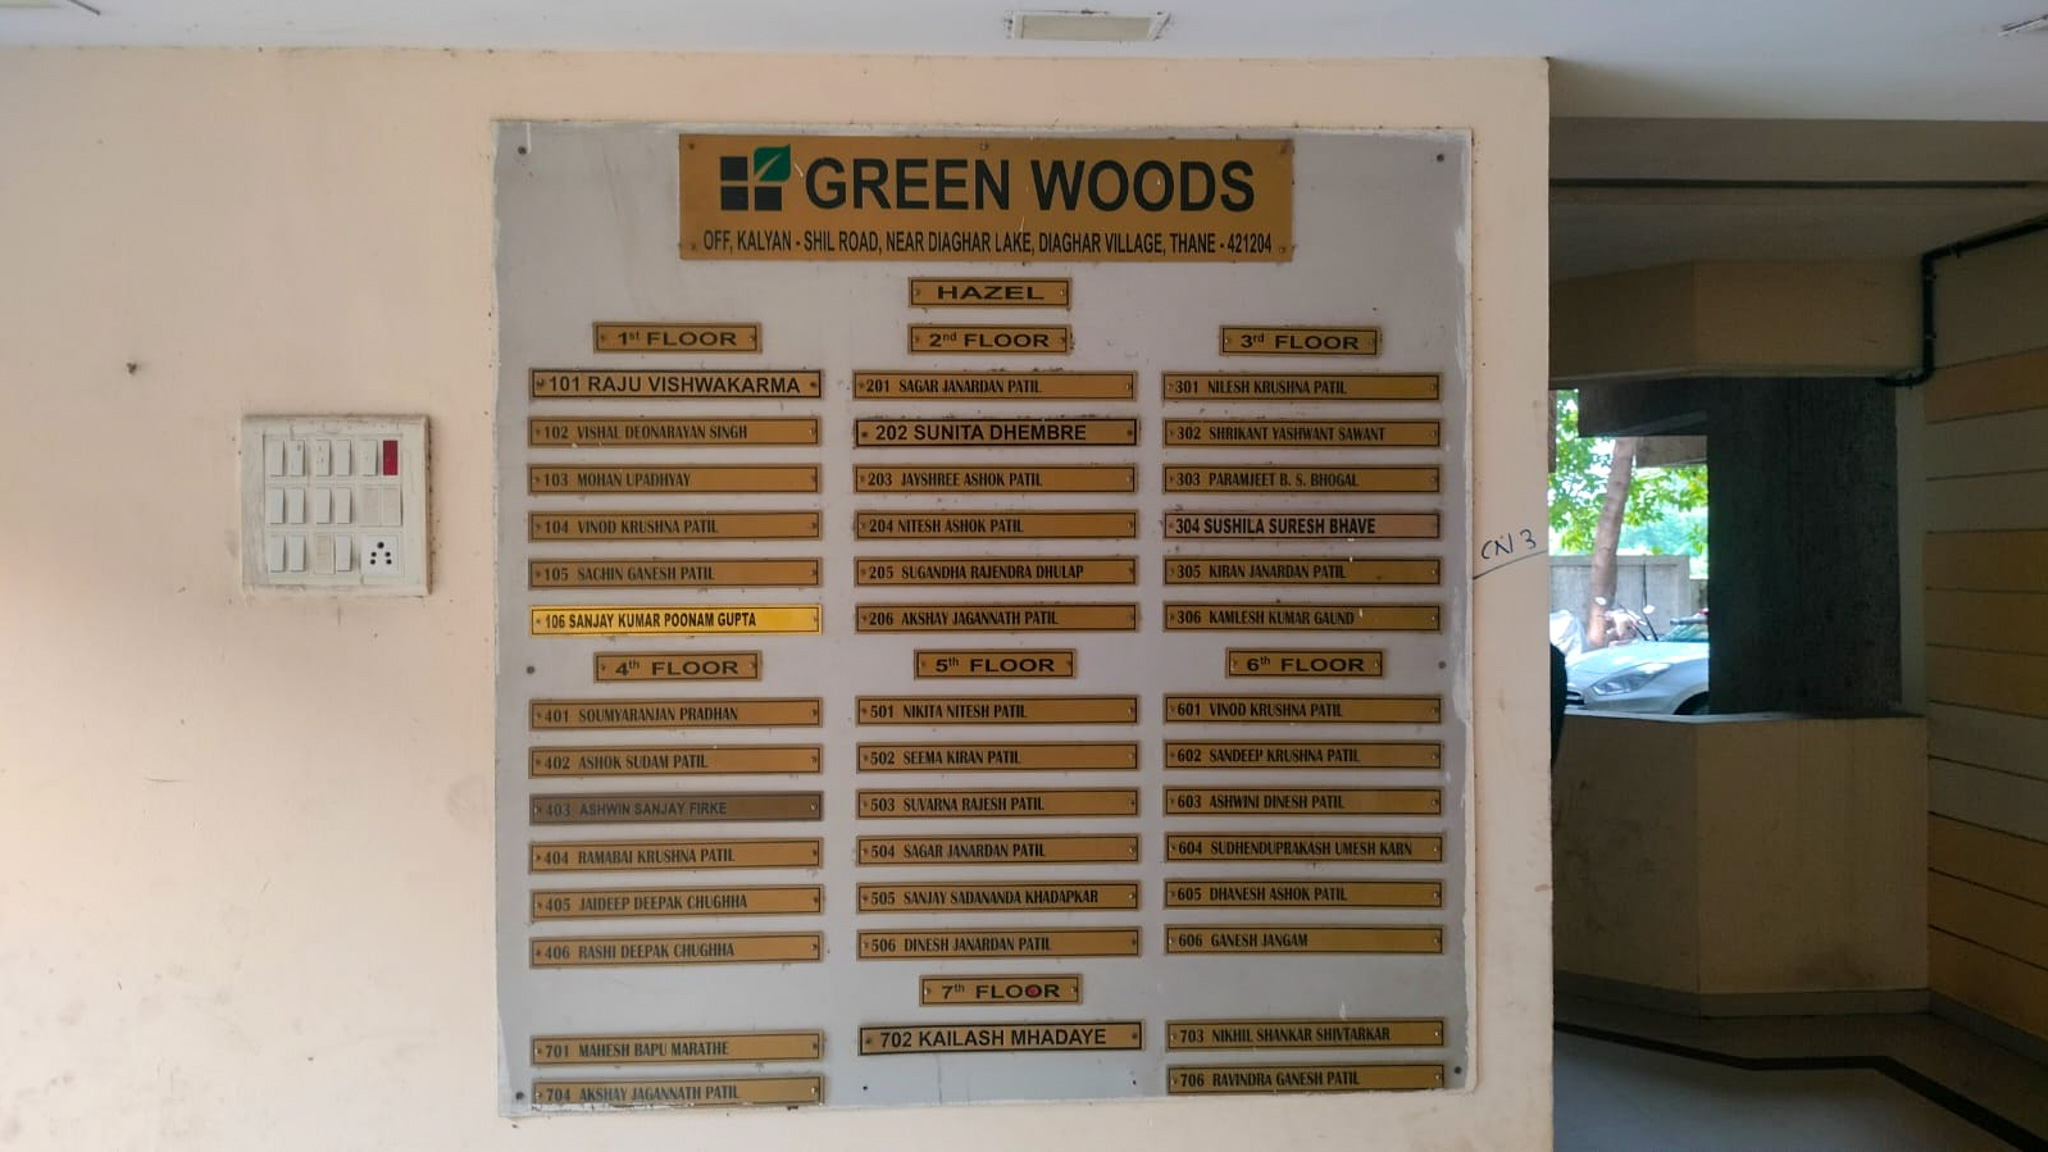 GREEN WOODS
OFF, KALYAN - SHIL ROAD, NEAR DIAGHAR LAKE, DIAGHAR VILLAGE, THANE - 421204
HAZEL
1st FLOOR
101 RAJU VISHWAKARMA
102 VISHAL DEONARAYAN SINGH
103 MOHAN UPADHYAY
104 VINOD KRUSHNA PATIL
105 SACHIN GANESH PATIL
106 SANJAY KUMAR POONAM GUPTA
2nd FLOOR
201 SAGAR JANARDAN PATIL
202 SUNITA DHEMBRE
203 JAYSHREE ASHOK PATIL
204 NITESH ASHOK PATIL
205 SUGANDHA RAJENDRA DHULAP
206 AKSHAY JAGANNATH PATIL
3rd FLOOR
301 NILESH KRUSHNA PATIL
302 SHRIKANT YASHWANT SAWANT
303 PARAMJEET B. S. BHOGAL
304 SUSHILA SURESH BHAVE
305 KIRAN JANARDAN PATIL
306 KAMLESH KUMAR GAUND
4th FLOOR
401 SOUMYARANJAN PRADHAN
402 ASHOK SUDAM PATIL
403 ASHWIN SANJAY FIRKE
404 RAMABAI KRUSHNA PATIL
405 JAIDEEP DEEPAK CHUGHHA
406 RASHI DEEPAK CHUGHHA
5th FLOOR
501 NIKITA NITESH PATIL
502 SEEMA KIRAN PATIL
503 SUVARNA RAJESH PATIL
504 SAGAR JANARDAN PATIL
505 SANJAY SADANANDA KHADAPKAR
506 DINESH JANARDAN PATIL
6th FLOOR
601 VINOD KRUSHNA PATIL
602 SANDEEP KRUSHNA PATIL
603 ASHWINI DINESH PATIL
604 SUDHENDUPRAKASH UMESH KARN
605 DHANESH ASHOK PATIL
606 GANESH JANGAM
7th FLOOR
701 MAHESH BAPU MARATHE
702 KAILASH MHADAYE
703 NIKHIL SHANKAR SHIVTARKAR
704 AKSHAY JAGANNATH PATIL
706 RAVINDRA GANESH PATIL